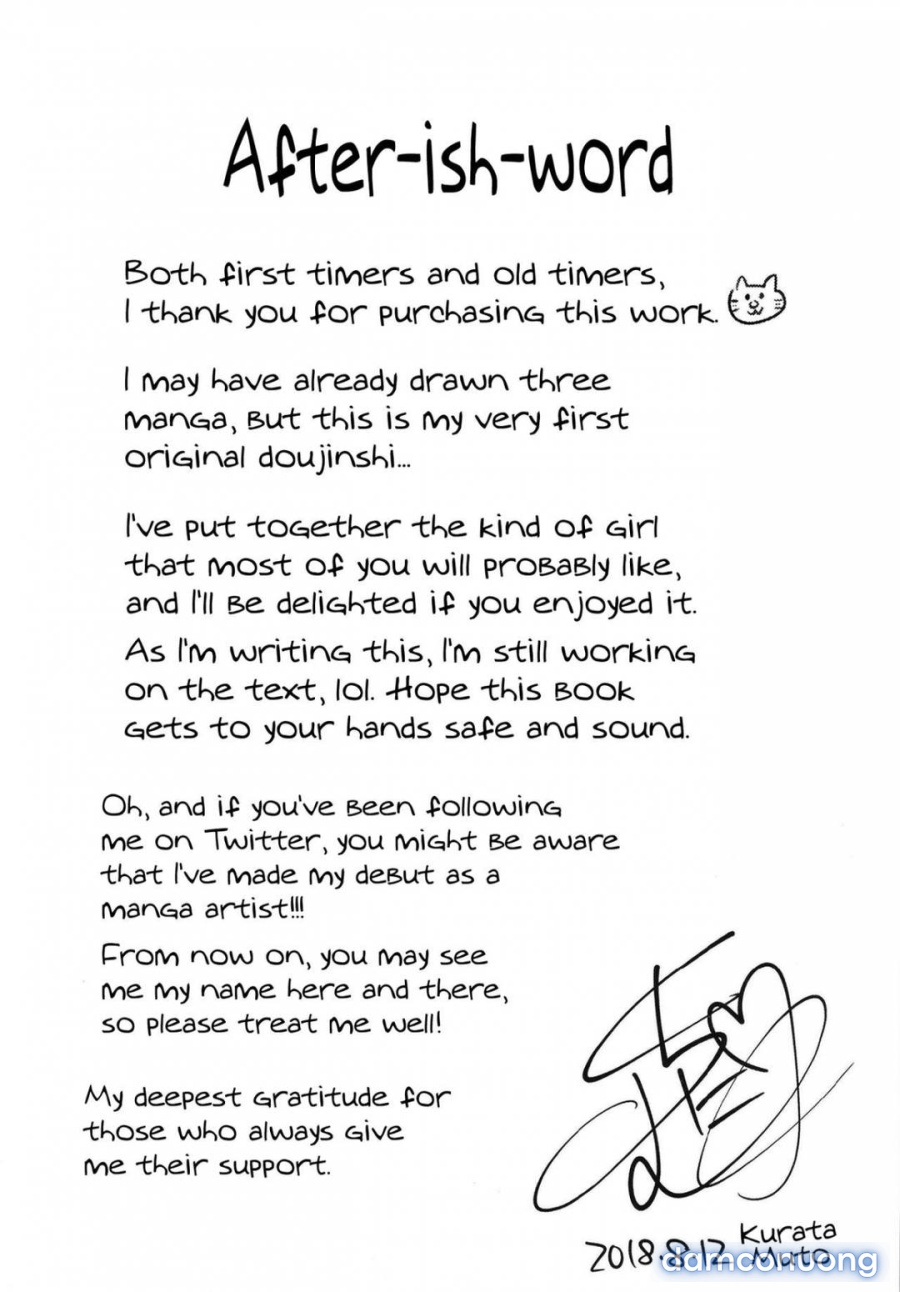 After-ish-word
Both first timers and old timers,
I thank you for purchasing this work.
I may have already drawn three
manga, but this is my very first
original doujinshi...
I've put together the kind of girl
that most of you will probably like,
and I'll be delighted if you enjoyed it.
As I'm writing this, I'm still working
on the text, lol. Hope this book
gets to your hands safe and sound.
Oh, and if you've been following
me on Twitter, you might be aware
that I've made my debut as a
manga artist!!!
From now on, you may see
me my name here and there,
so please treat me well!
My deepest gratitude for
those who always give
me their support.
2018.8.12
Kurata
Mato
damconuong